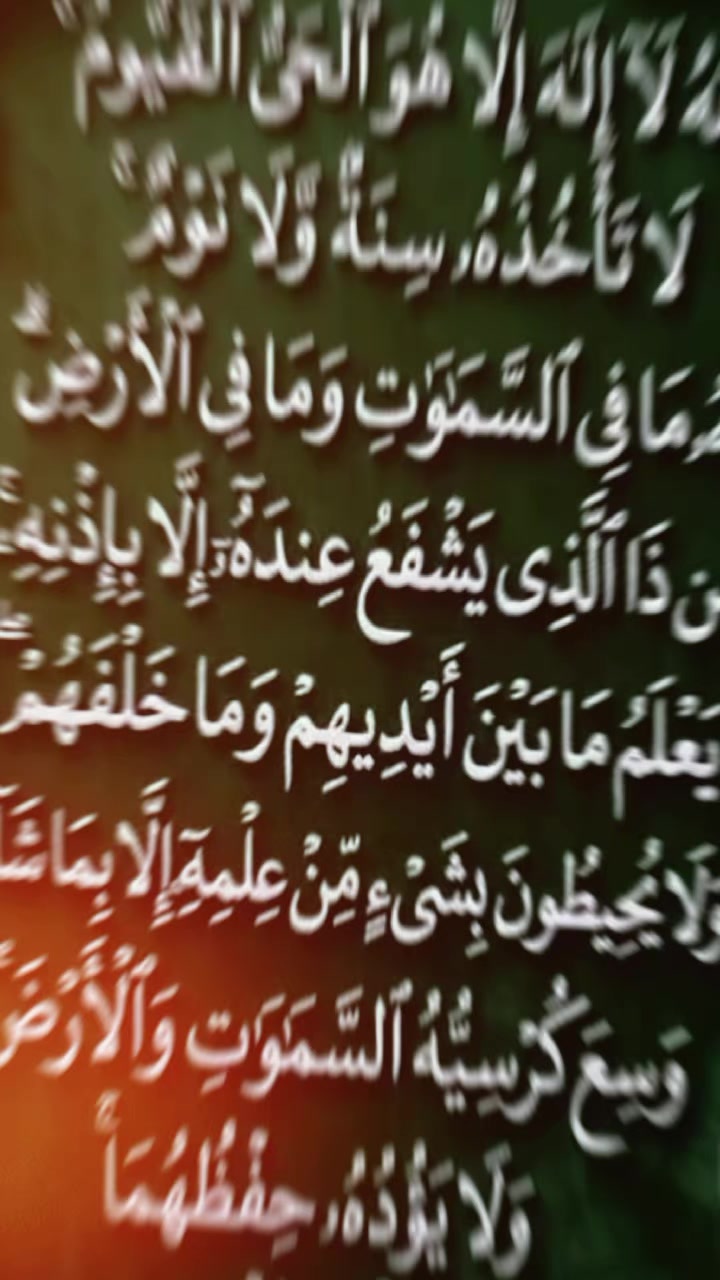 لَآ إِلَٰهَ إِلَّا هُوَ ٱلْحَىُّ ٱلْقَيُّومُ ۚ
لَا تَأْخُذُهُۥ سِنَةٌ وَلَا نَوْمٌ ۚ
مَا فِى ٱلسَّمَٰوَٰتِ وَمَا فِى ٱلْأَرْضِ ۗ
ذَا ٱلَّذِى يَشْفَعُ عِندَهُۥٓ إِلَّا بِإِذْنِهِۦ ۚ
يَعْلَمُ مَا بَيْنَ أَيْدِيهِمْ وَمَا خَلْفَهُمْ ۖ
وَلَا يُحِيطُونَ بِشَىْءٍ مِّنْ عِلْمِهِۦٓ إِلَّا بِمَا شَآ
وَسِعَ كُرْسِيُّهُ ٱلسَّمَٰوَٰتِ وَٱلْأَرْضَ ۖ
وَلَا يَـُٔودُهُۥ حِفْظُهُمَا ۚ